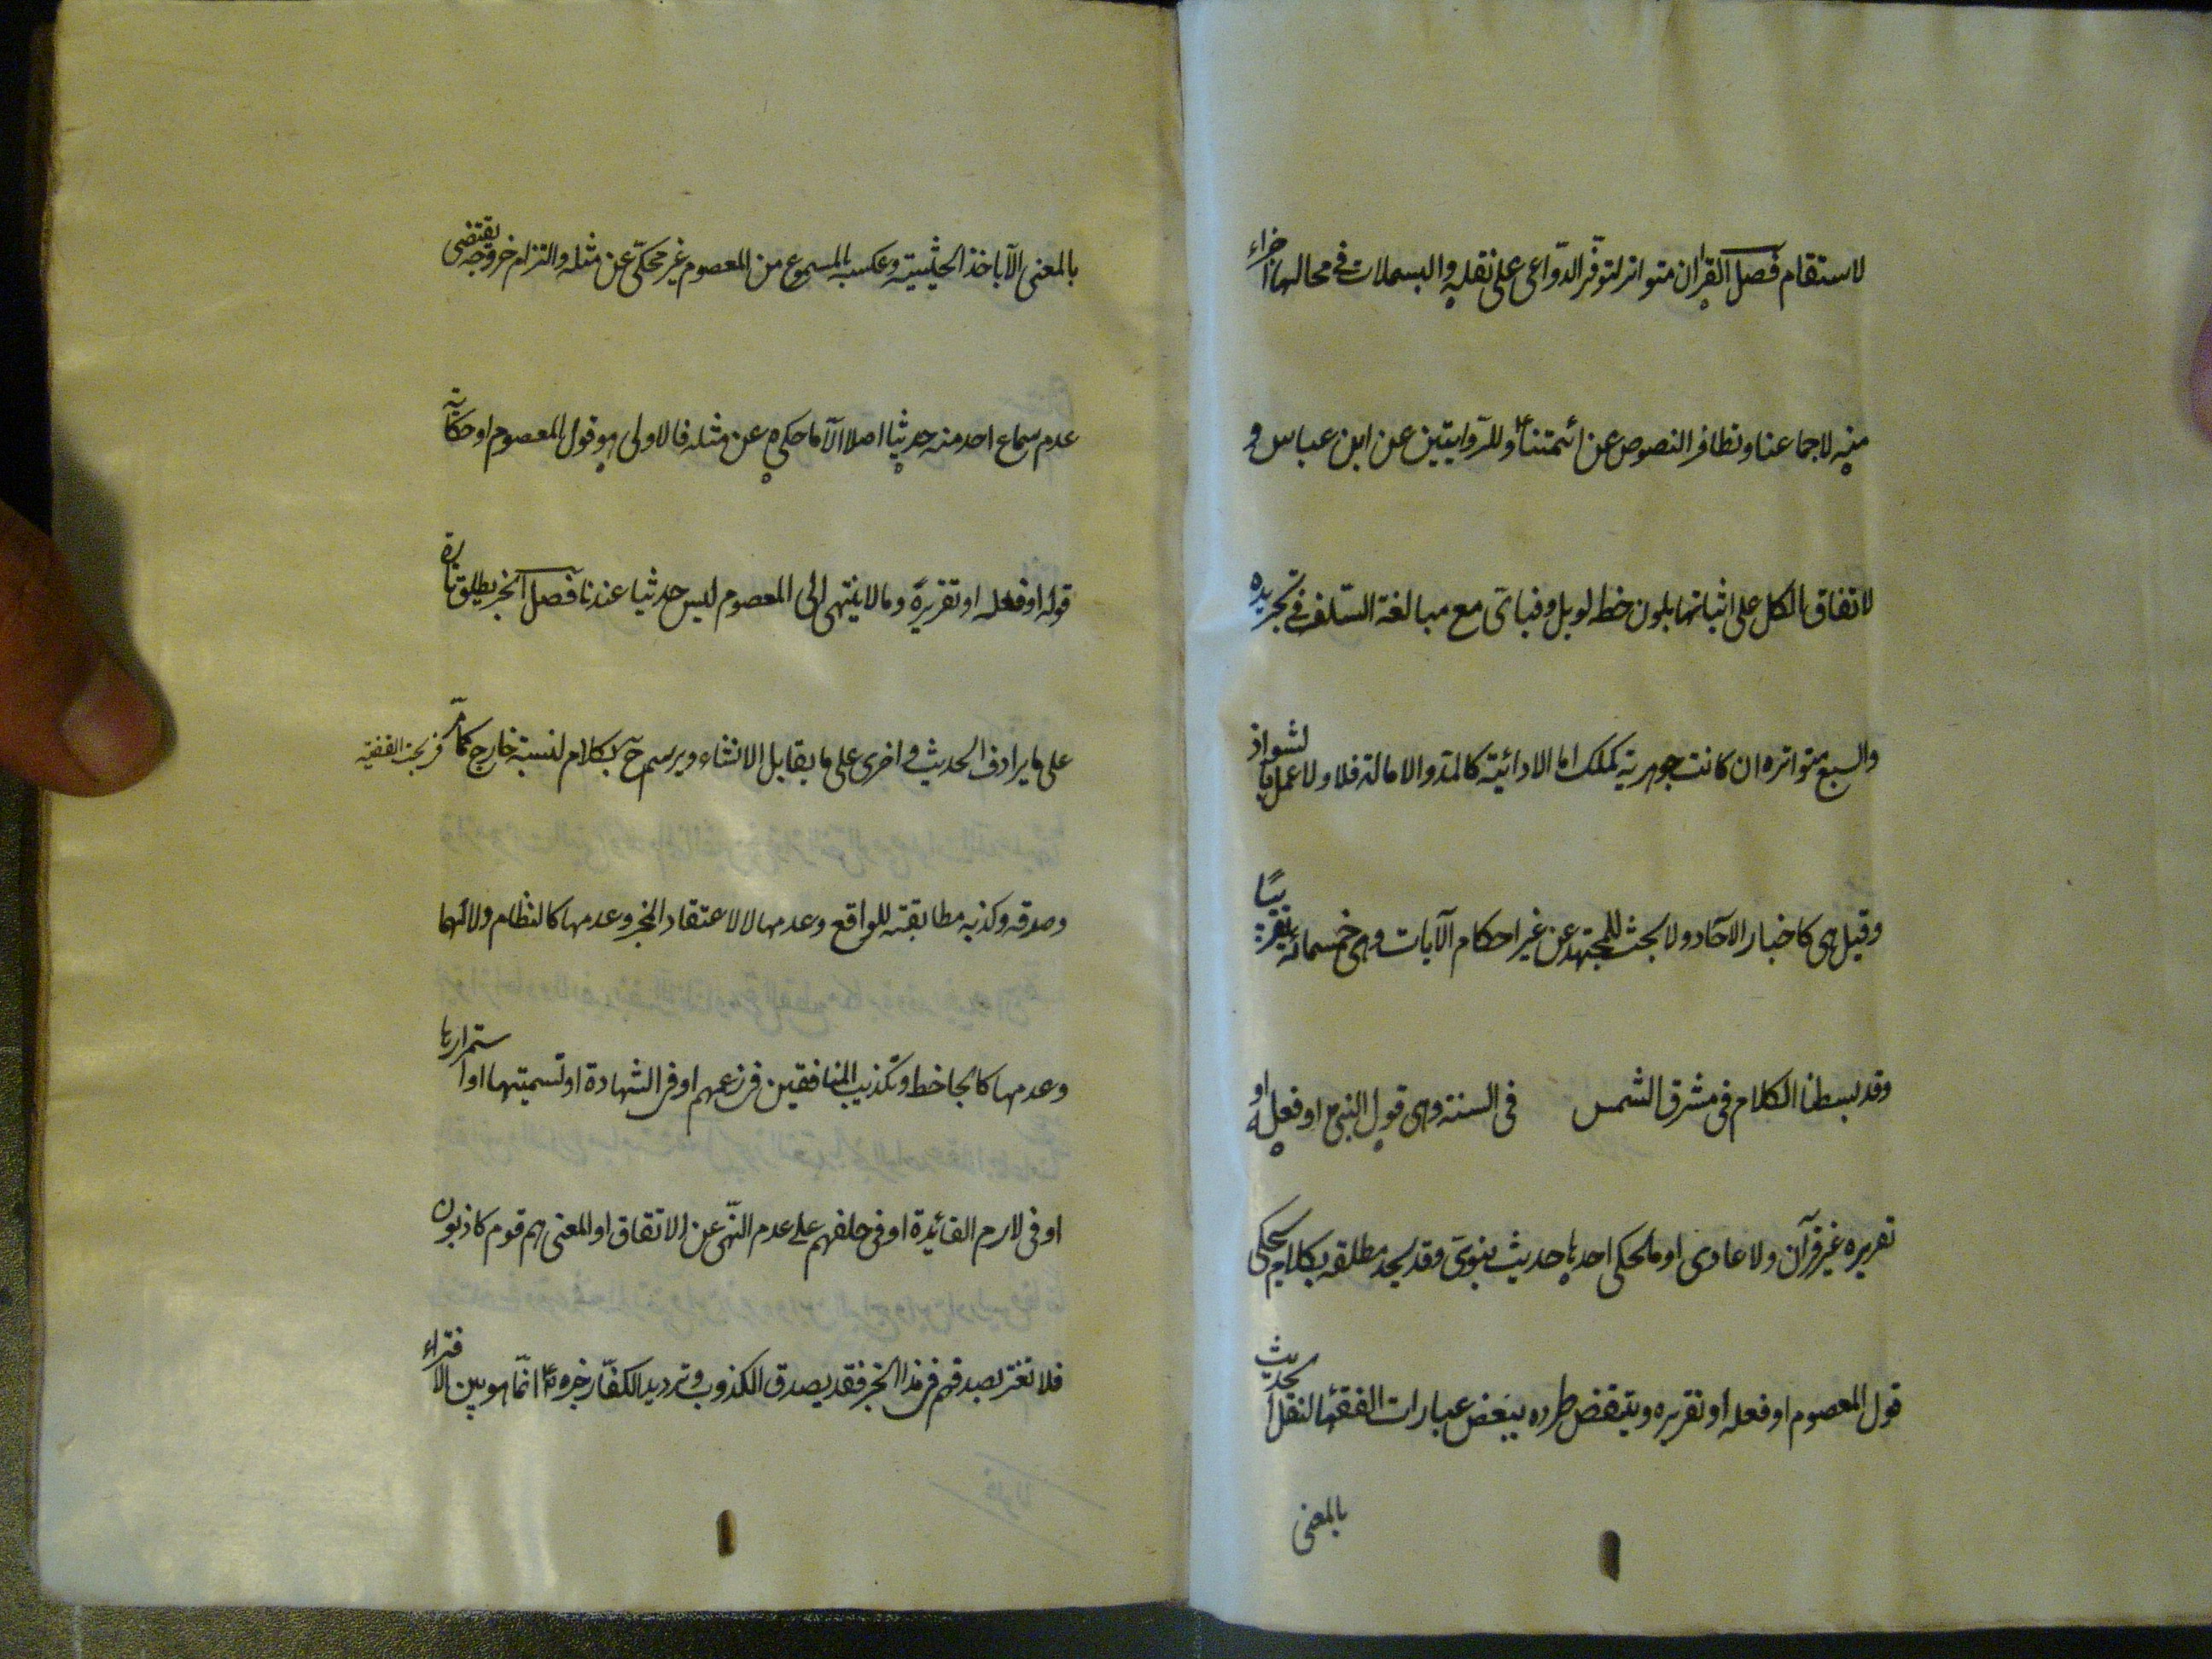 لاستقام فصل القران متواتر لتوفّر الدّواعى على نقله والبسملات فى محالها اجزاء
منه لاجماعنا وتظافر النصوص عن ائمتنا ع وللرّوايتين عن ابن عباس و
لاتفاق الكل على اثباتها بلون خطه لوبل وفباى مع مبالغة السّلف فى تجريده
والسبع متواتره ان كانت جوهرية كملك اما الادائية كالمد والامالة فلا ولا عمل بالشواذ
وقيل هى كاخبار الآحاد ولا بحث للمجتهد عن غير احكام الآيات وهى خمسمائة تقريبًا
وقد بسطنا الكلام فى مشرق الشمس فى السنة وهى قول النبى ص او فعله او
تقريره غير قرآن ولا عادى او ما يحكى احدها حديث نبوىّ وقد يحد مطلقه بكلام يحكى
قول المعصوم او فعله او تقريره وينتقض طرده ببعض عبارات الفقهآ لنقل الحديث
بالمعنى
بالمعنى الّا باخذ الحيثية وعكسه بالمسموع من المعصوم غير محكىّ عن مثله والتزام خروجه يقتضى
عدم سماع احد منه حديثا اصلا الّا ما حكى ه عن مثله فالاولى هو قول المعصوم او حكاية
قوله او فعله او تقريره وما لا ينتهى الى المعصوم ليس حديثا عندنا فصل الخبر يطلق تارة
على ما يرادف الحديث و اخرى على ما يقابل الانشاء ويرسم ح بكلام لنسبة خارج كما مرّ فى بحث الفقه
وصدقه وكذبه مطابقته للواقع وعدمها لا لاعتقاد المخبر وعدمها كالنظام ولا لهما
وعدمها كالجاحظ وتكذيب المنافقين فى زعمهم او فى الشهادة او تسميتها او استمرارها
او فى لازم الفائدة او فى حلفهم على عدم النّهى عن الانفاق او المعنى هم قوم كاذبون
فلا تغتر بصدقهم فى هذا الخبر فقد يصدق الكذوب و ترديد الكفّار خبره ع انّما هو بين الافتراء